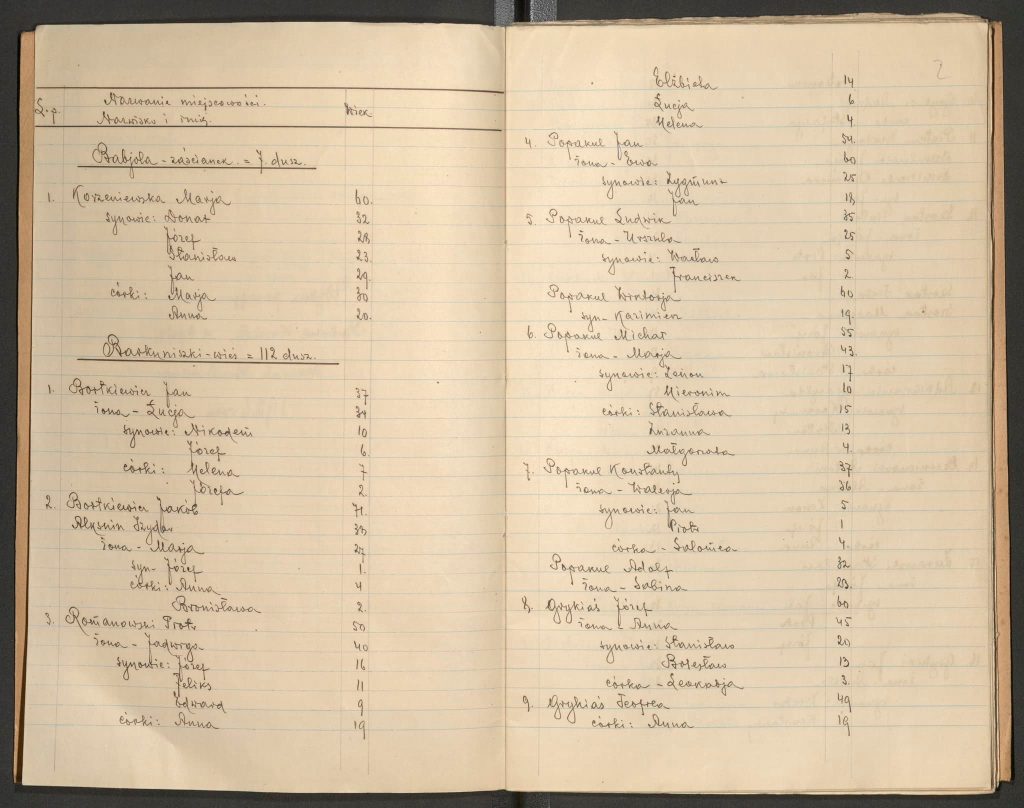 L.p.
Nazwanie miejscowości.
Nazwisko i imię.
Wiek
Babjoła - zaścianek. = 7. dusz.
1. Korzeniewska Marja 60.
synowie: Donat 32
Józef 28
Stanisław 23.
Jan 29.
córki: Marja 30
Anna 20.
Bartkuniszki - wieś = 112 dusz.
1. Bortkiewicz Jan 37
żona - Łucja 34
synowie: Nikodem 10
Józef 6.
córki: Helena 7
Józefa 2
2. Bortkiewicz Jakób 71.
Aleksnin Izydor 33
żona - Marja 27
syn - Józef 1.
córki: Anna 4
Bronisława 2.
3. Romanowski Piotr 50
żona - Jadwiga 40
synowie: Józef 16
Feliks 11
Edward 9
córki: Anna 19
2
Elżbieta 14
Łucja 6
Helena 4
4. Popakul Jan 54.
żona - Ewa 60
synowie: Zygmunt 25
Jan 18
5. Popakul Ludwik 35
żona - Urszula 25
synowie: Wacław 5
Franciszek 2.
Popakul Wiktorja 60
syn - Kazimierz 19.
6. Popakul Michał 55
żona - Marja 43.
synowie: Zenon 17
Hieronim 10
córki: Stanisława 15
Zuzanna 13
Małgorzata 4.
7. Popakul Konstanty 37
żona - Walerja 36
synowie: Jan 5
Piotr 1
córka - Salomea 4.
Popakul Adolf 32
żona - Sabina 23.
8. Grykiaś Józef 60
żona - Anna 45
synowie: Stanisław 20
Bolesław 13
córka - Leokadja 3.
9. Grykiaś Teofila 49
córki: Anna 19